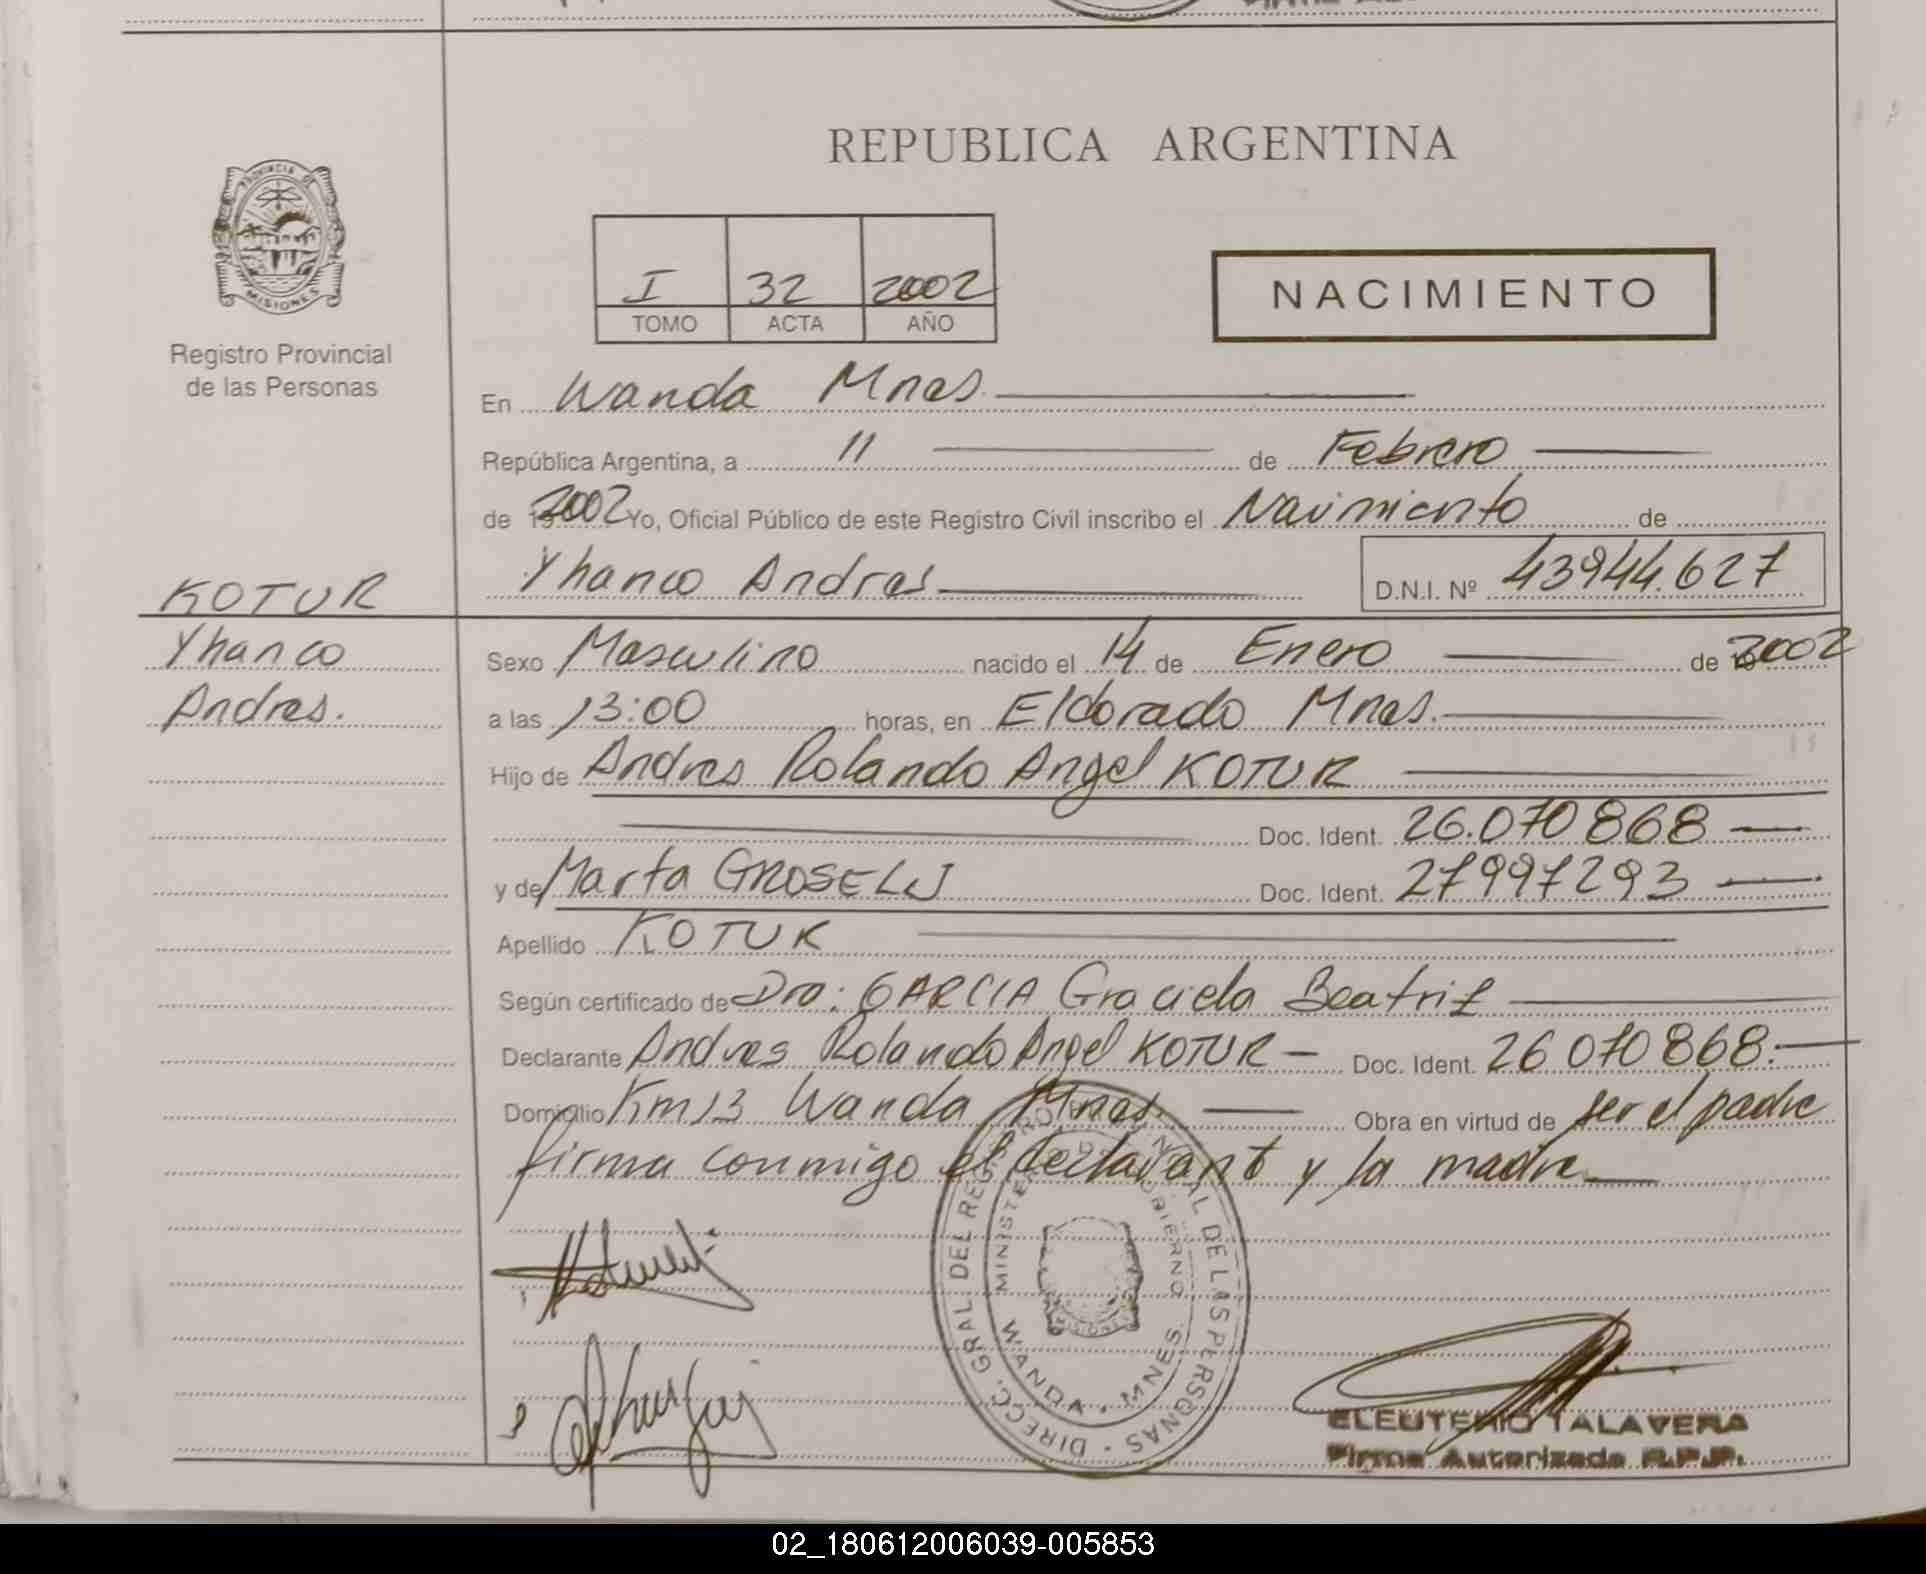 REPUBLICA ARGENTINA
PROVINCIA DE
MISIONES
Registro Provincial
de las Personas
I 32 2002
TOMO ACTA AÑO
NACIMIENTO
En Wanda Mnes.
República Argentina, a 11 de Febrero
de 2002 Yo, Oficial Público de este Registro Civil inscribo el Nacimiento de
Yhanco Andres D.N.I. Nº 43944.627
KOTUR
Yhanco
Andres.
Sexo Masculino nacido el 14 de Enero de 2002
a las 13:00 horas, en Eldorado Mnes.
Hijo de Andres Rolando Angel KOTUR
Doc. Ident. 26.070868
y de Marta GROSELJ Doc. Ident. 27997293
Apellido KOTUR
Según certificado de Dra: GARCIA Graciela Beatriz
Declarante Andres Rolando Angel KOTUR Doc. Ident. 26 070868.
Domicilio Km13 Wanda Mnes. Obra en virtud de ser el padre
firma conmigo el declarant y la madre
DIRECC. GRAL DEL REG. PROVINCIAL DE LAS PERSONAS
MINISTERIO DE GOBIERNO
MISIONES
WANDA · MNES.
ELEUTERIO TALAVERA
Firma Autorizada R.P.P.
02_180612006039-005853